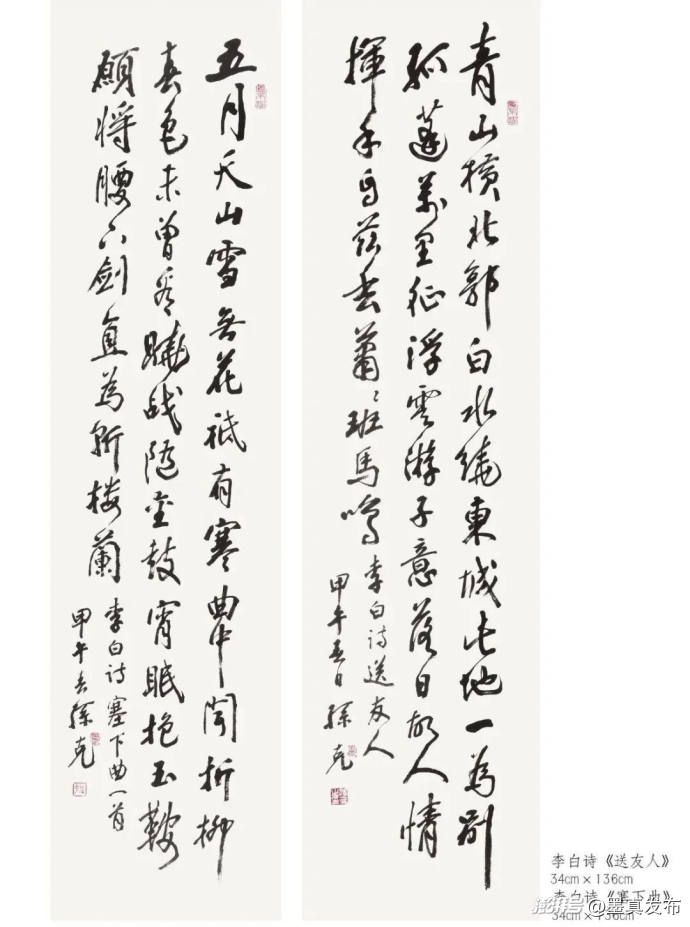 青山横北郭白水繞東城此地一為别
孤蓬萬里征浮雲游子意落日故人情
揮手自茲去蕭々班馬鳴
李白诗送友人
甲午春日孫克
五月天山雪無花祗有寒曲中聞折柳
春色未曾看曉战随金鼓宵眠抱玉鞍
願将腰下劍直為斬楼蘭
李白诗塞下曲一首
甲午春孫克
李白诗《送友人》
34cm×136cm
李白诗《塞下曲》
34cm×136cm
澎湃号@墨真发布